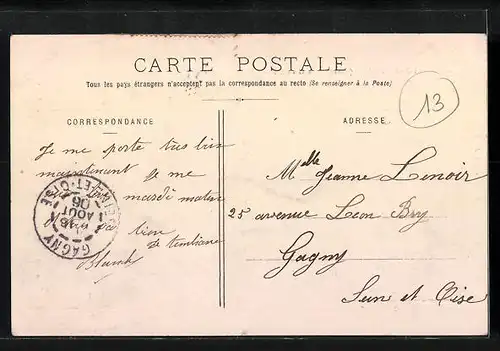 CARTE POSTALE
Tous les pays étrangers n'acceptent pas la correspondance au recto (Se renseigner à la Poste)
13
CORRESPONDANCE
ADRESSE
Je me porte très bien
maintenant je me
mardi matin
bien
Blanche
GAGNY
SEINE-ET-OISE
AOUT
06
Melle Jeanne Lenoir
25 avenue Léon Bry
Gagny
Sein et Oise